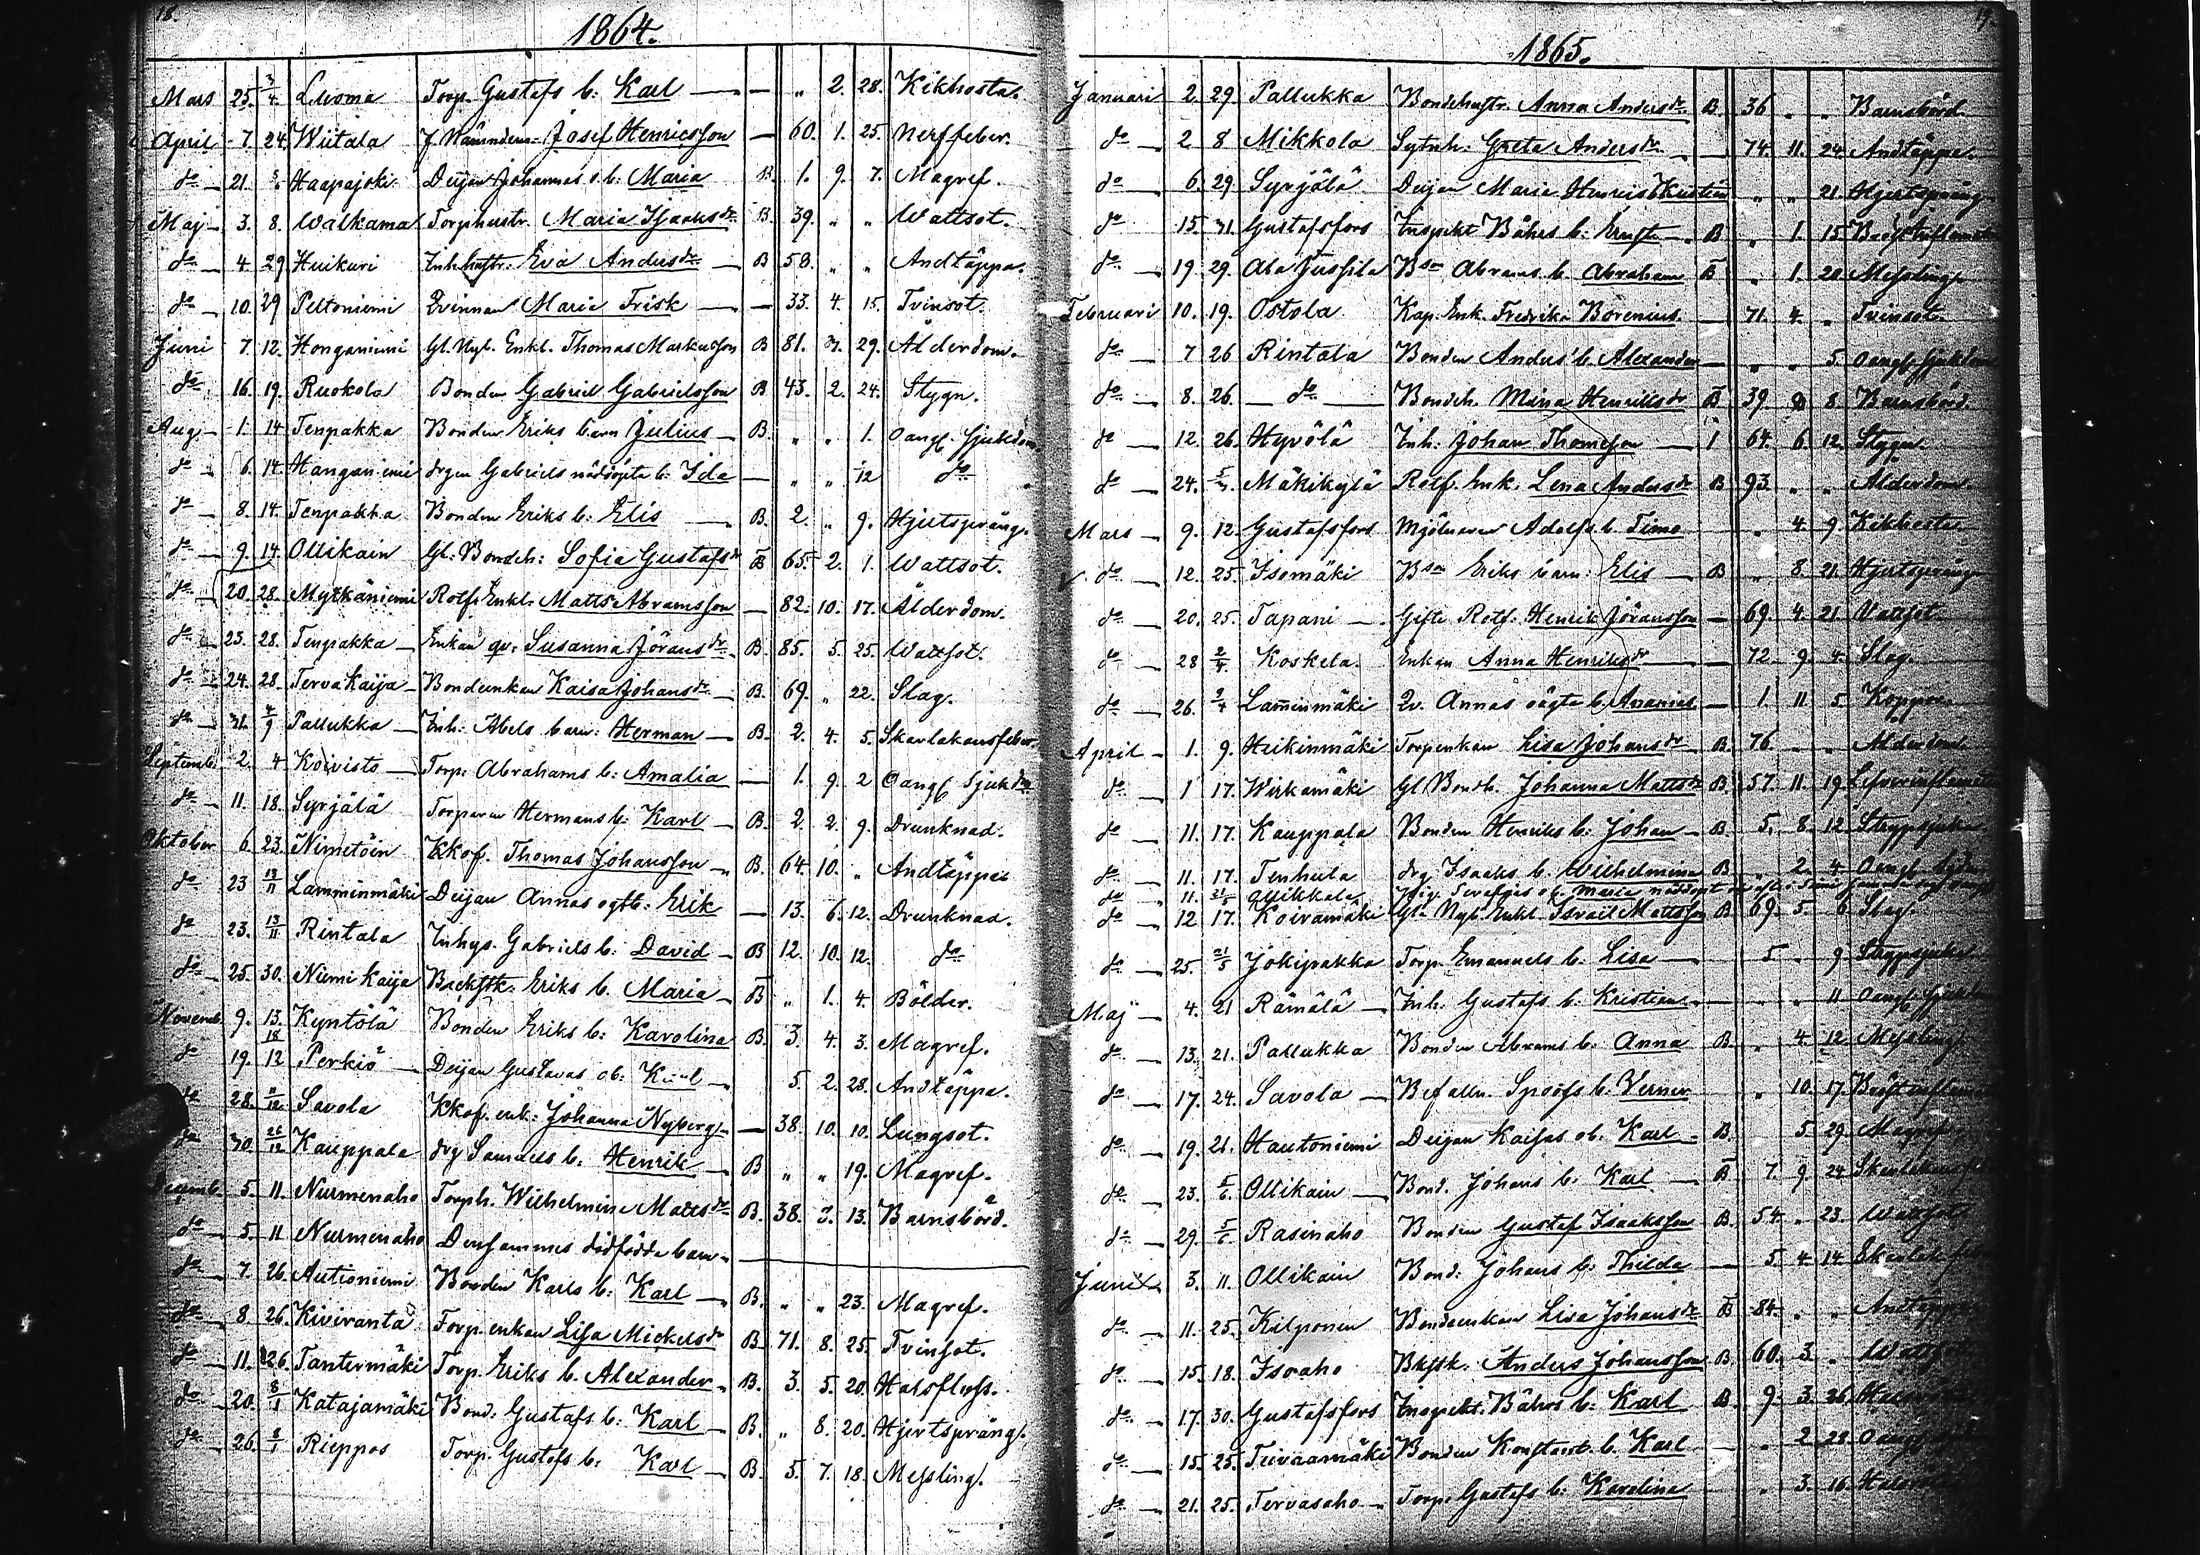 18.
1864.
Mars 25. 3/4 Luoma Torp. Gustafs b: Karl — — „ 2. 28. Kikhosta.
April 7. 24. Wiitala Josef Henricsson — 60. 1. 25. Nerffeber.
do 21 Haapajoki Deijan Johannas o b: Maria B. 1. 9. 7. Magref.
Maj 3. 8. Walkama Torphustr. Maria Isaaks dr B. 39. „ „ Wattsot.
do 4. 29 Huikuri Inh. hustr. Eva Anders dr B 58. „ „ Andtäppa.
do 10. 29 Peltoniemi Qvinnan Maria Frisk — — 33. 4. 15. Tvinsot.
Juni 7. 12. Honganiemi Gl. Nyb. Enkl. Thomas Markusson B 81. 3. 29. Ålderdom.
do 16. 19. Ruokola Bonden Gabriel Gabrielsson B 43. 2. 24. Stygn.
Aug. 1. 14 Tenpakka Bonden Eriks barn Julius B. „ „ 1. Oangf. sjukdom
do 6. 14. Hanganiemi drgen Gabriels nöddöpta b: Ida — „ „ 1/2 do
do 8. 14. Tenpakka Bonden Eriks b: Elis B. 2. „ 9. Hjertsprång.
do 9. 14 Ollikain Gl: Bondeh: Sofia Gustafs dr B 65. 2. 1. Wattsot.
do 20. 28. Mytkäniemi Rotf. Enkl. Matts Abramsson — 82. 10. 17. Ålderdom.
do 23. 28. Tenpakka Enkan qv: Susanna Jörans dr B. 85. 5. 25. Wattsot.
do 24. 28. Tervakaija Bondeenkan Kaisa Johans dr B. 69. „ 22. Slag.
do 31. 4/9 Pallukka Inh: Abels barn: Herman B. 2. 4. 5. Skarlakansfeber
Septemb. 2. 4 Koivisto Torp. Abrahams b: Amalia — 1. 9. 2 Oangf. Sjukd
do 11. 18. Syrjälä Torparen Hermans b: Karl B. 2. 2. 9. Drunknad.
Oktober 6 23. Nimetöin Kkof. Thomas Johansson B. 64. 10. „ Andtäppa
do 23 13/11 Lamminmäki Deijan Annas ogtb: Erik — 13. 6. 12. Drunknad.
do 23. 13/11 Rintala Inhys. Gabriels b: David B 12. 10. 12. do
do 25. 30. Niemikaija Backstk. Eriks b. Maria B „ 1. 4. Bölder.
Novemb. 9. 13. Kyntölä Bonden Eriks b: Karolina B. 3. 4. 3. Magref.
do 19. 18/12 Perkiö Deijan Gustavas ob: Karl 5. 2. 28. Andtäppa.
do 28. Savola Kkof. enk: Johanna Nyberg — 38. 10. 10. Lungsot.
do 30. 26/12 Kauppala drg Samuels b: Henrik B „ „ 19. Magref.
Decemb. 5. 11. Nurmenaho Torph. Wilhelmina Matts dr B. 38. 3. 13. Barnsbörd.
do 5. 11 Nurmenaho Densammes dödfödda barn —
do 7. 26. Autioniemi Bonden Karls b: Karl B. „ „ 23. Magref.
do 8. 26. Kiviranta Torp. enkan Lisa Mickels dr B. 71. 8. 25. Tvinsot.
do 11. 26. Tantermäki Torp. Eriks b. Alexander B. 3. 5. 20. Halsfluss.
do 20. 8/1 Katajamäki Bond. Gustafs b: Karl B. „ 8. 20. Hjertsprång.
do 26. 8/1 Rieppos Torp. Gustafs b: Karl B. 5. 7. 18. Messling.
1865.
Januari 2. 29. Pallukka Bondehustr. Anna Anders dr B. 36 „ „ Barnsbörd.
do 2 8 Mikkola Sytnh: Greta Anders dr — 74. 11. 24. Andtäppa.
do 6. 29 Syrjälä Deijan Maria Henricsd Kristian „ „ 21. Hjertsprång
do 15. 31. Gustafsfors Inspekt Båhrs b: Ernst B „ 1. 15
do 19 29. Ala Jussila Bson Abrams b. Abraham B „ 1. 20 Messling.
Februari 10. 19. Ostola Kap. Enk. Fredrika Borenius. — 71. 4. „ Tvinsot.
do 7 26 Rintala Bonden Anders b. Alexander — „ „ 5 Oangf. sjukdom
do 8. 26. do Bondeh. Maria Henriks dr B 39 8. Barnsbörd.
do 12. 26. Hyvölä Inh. Johan Thomasson 64. 6. 12. Stygn.
do 24. Mäkikylä Rotf. Enk. Lena Anders dr B 93. „ „ Ålderdom.
Mars 9. 12. Gustafsfors Mjölnaren Adolfs b. Timo „ 4. 9. Kikhosta
do 12. 25. Isomäki Bson Eriks barn: Elis B „ 8. 21. Hjertsprång
do 20. 25. Tapani Gifte Rotf. Henrik Jöransson — 69. 4. 21. Vattsot.
do 28 2/4 Koskela. Enkan Anna Henriks dr — 72. 9. 4. Slag.
do 26. 2/4 Lamminmäki Qv. Annas oägta b. Ananias — 1. 11 5. Koppor.
April 1. 9. Heikinmäki Torpenkan Lisa Johans dr B. 76. „ „ Ålderdom.
do 1 17. Wirkamäki Gl Bondh. Johanna Matts dr B. 57. 11. 19. Lefverinflamation
do 11. 17. Kauppala Bonden Henriks b. Johan B. 5. 8. 12 Strypsjuka
do 11. 17. Tenhula drg Isaaks b. Wilhelmina B „ 2. 4. Oangf. sjd
do 11. Maria
do 12 17. Koivamäki Gl. Nyb. Enkl. Israil Mattsson B 69. 5. 6 Slag.
do 25. 21/5 Jokipakka Torp. Emanuels b. Lisa — 5. „ 9 Strypsjuka
Maj 4. 21 Rämälä Inh. Gustafs b. Kristian — „ „ 11 Oangf. sjukdom
do 13. 21. Pallukka Bonden Abrams b. Anna B. „ 4. 12. Messling
do 17. 24. Savola Befallm. Spoofs b. Verner „ 10. 17.
do 19. 21. Hautoniemi Deijan Kaisas ob. Karl B 5. 29 Magref
do 23. Ollikain Bond. Johans b. Karl B 7. 9. 24
do 29. Rasinaho Bonden Gustaf Isaaksson B. 54. „ 23. Wattsot
Juni 3. 11. Ollikain Bond. Johans b. Thilda — 5. 4. 14.
do 11. 25. Kilponen Bondeenkan Lisa Johans dr B 84. „ „ Andtäppa
do 15. 18. Isoaho Bkstk. Anders Johansson B. 60. 3. „
do 17. 30. Gustafsfors Inspekt. Båhrs b. Karl B 9. 3. 26.
do 15. 25. Teivaamäki Bonden Konstant. b. Karl — „ 2. 28
do 21. 25. Tervasaho Torp. Gustafs b: Karolina „ 3. 16.